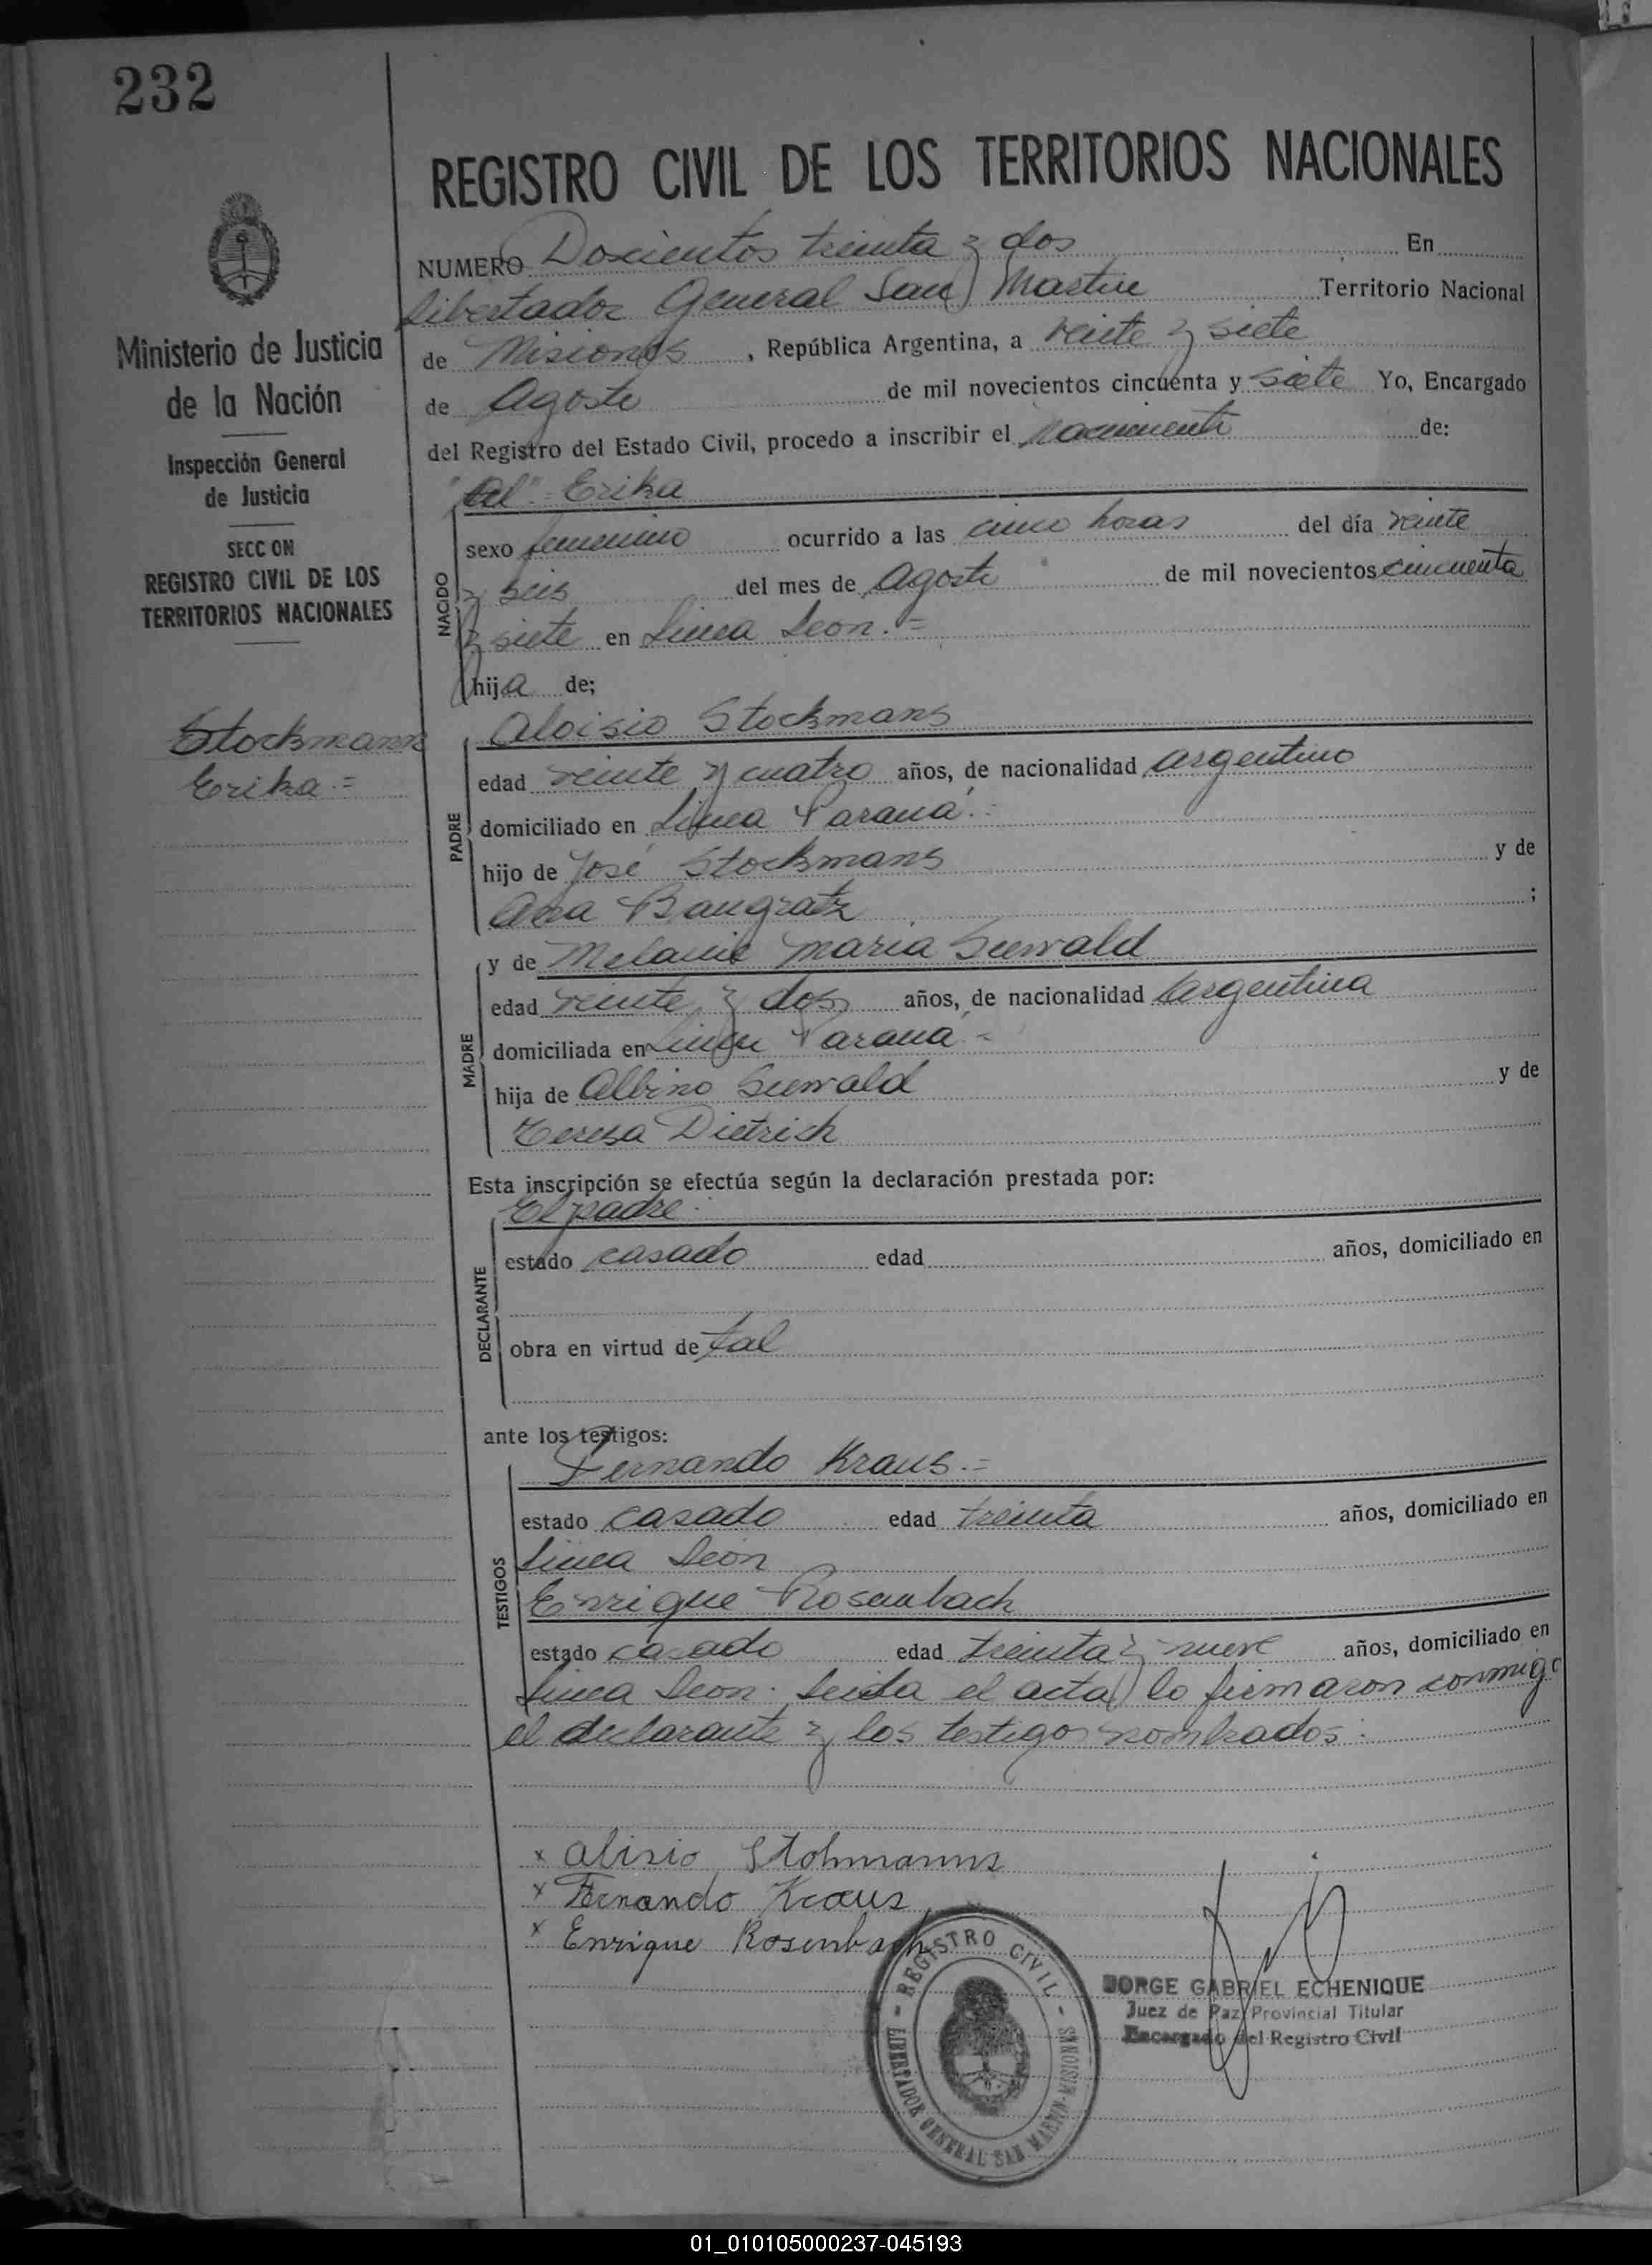 232
REGISTRO CIVIL DE LOS TERRITORIOS NACIONALES
NUMERO Doscientos treinta y dos En
Libertador General San Martin Territorio Nacional
de Misiones, República Argentina, a veinte y siete
de Agosto de mil novecientos cincuenta y siete Yo, Encargado
del Registro del Estado Civil, procedo a inscribir el Nacimiento de:
Erika
sexo femenino ocurrido a las cinco horas del día veinte
y seis del mes de Agosto de mil novecientos cincuenta
y siete en Linea Leon.=
hija de;
NACIDO
Ministerio de Justicia
de la Nación
Inspección General
de Justicia
SECC ON
REGISTRO CIVIL DE LOS
TERRITORIOS NACIONALES
Stockmann
Erika.=
Aloisio Stockmans
edad veinte y cuatro años, de nacionalidad argentino
domiciliado en Linea Paraná.=
hijo de José Stockmans y de
Ana Baugratz ;
PADRE
y de Melanie Maria Seewald
edad veinte y dos años, de nacionalidad argentina
domiciliada en Linea Paraná =
hija de Albino Seewald y de
Teresa Dietrich
MADRE
Esta inscripción se efectúa según la declaración prestada por:
El padre.
estado casado edad años, domiciliado en
obra en virtud de tal
DECLARANTE
ante los testigos:
Fernando Kraus.=
estado casado edad treinta años, domiciliado en
Linea León
Enrique Rosenbach
estado casado edad treinta y nueve años, domiciliado en
Linea Leon. Leida el acta lo firmaron conmigo
el declarante y los testigos nombrados.
TESTIGOS
x alisio Stohmanns
x Fernando Kraus
x Enrique Rosenbach
REGISTRO CIVIL
LIBERTADOR GENERAL SAN MARTIN-MISIONES
JORGE GABRIEL ECHENIQUE
Juez de Paz Provincial Titular
Encargado del Registro Civil
01_010105000237-045193